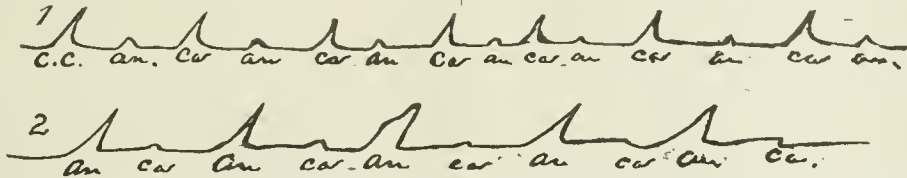 1
C.C. an. Car an car an Car an car an car an car an.
2
an car an car an car an car an car.